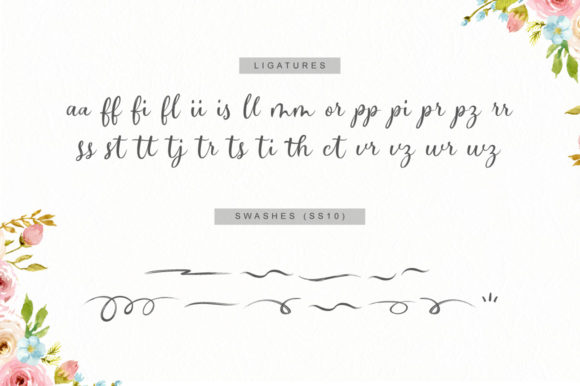 LIGATURES
aa ff fi fl ii is ll mm or pp pi pr pz rr
ss st tt tj tr ts ti th ct vr vz wr wz
SWASHES (SS10)